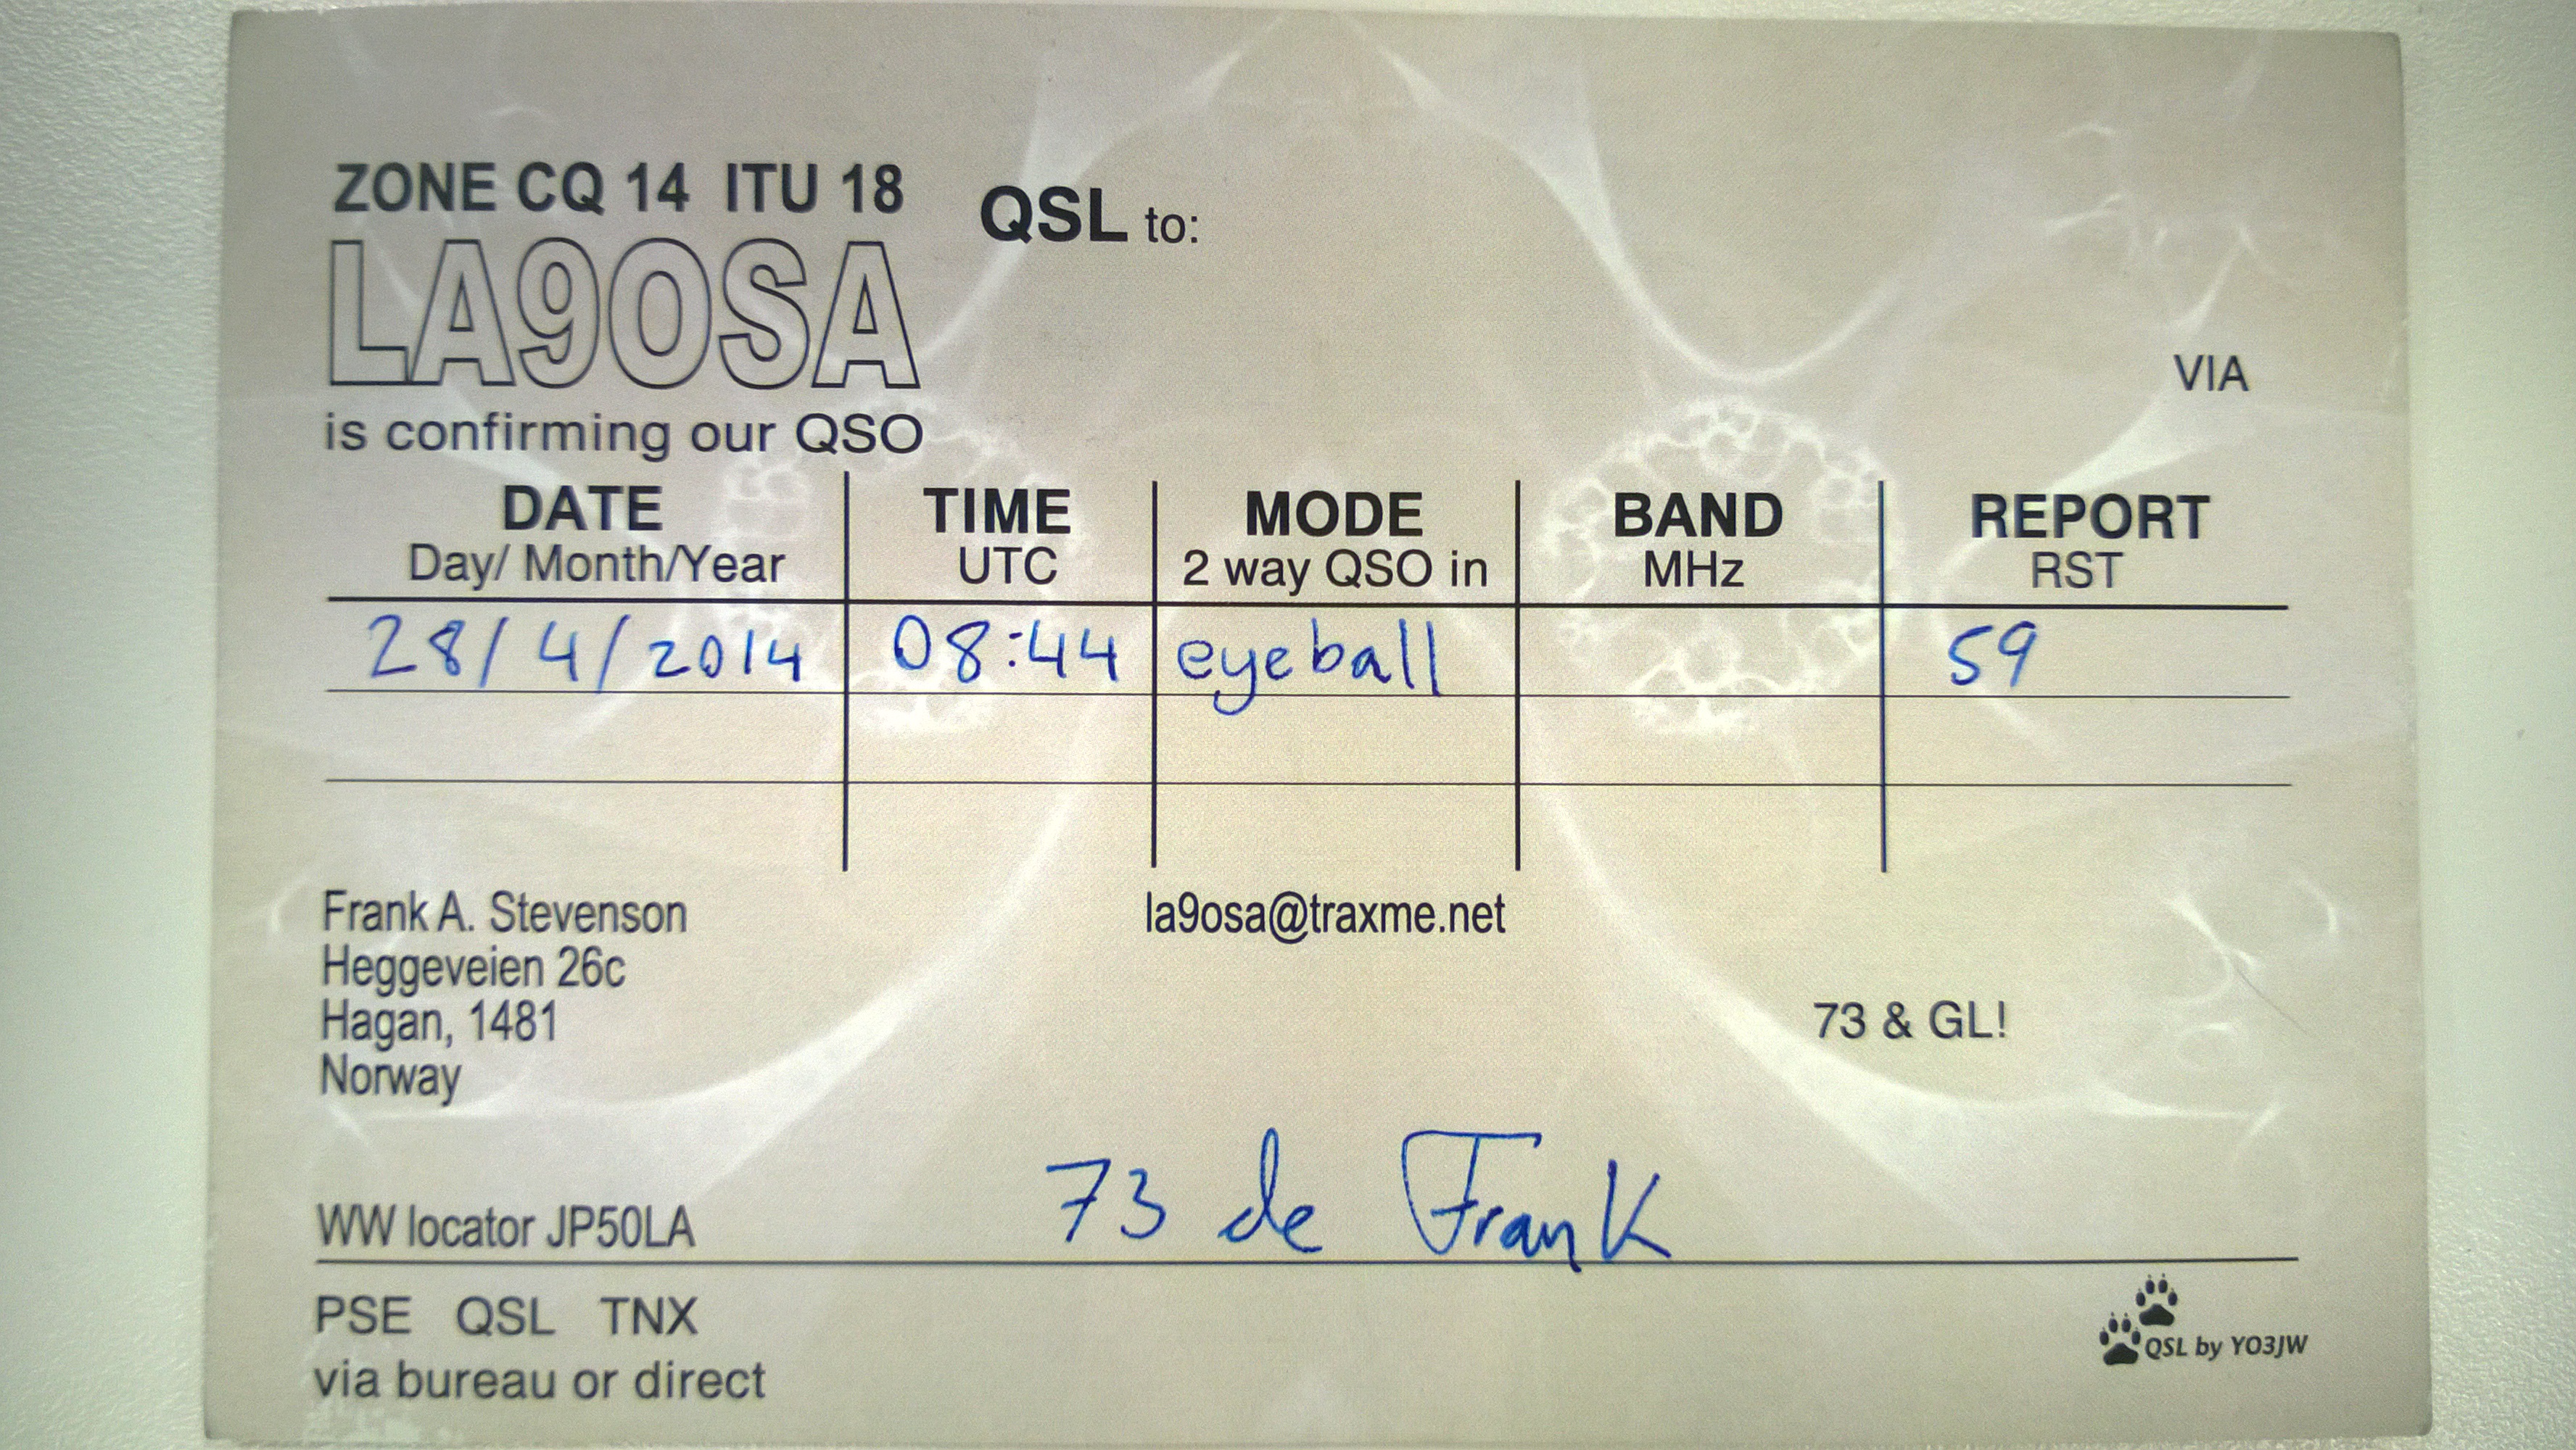 ZONE CQ 14 ITU 18
LA9OSA
is confirming our QSO
QSL to:
VIA
DATE TIME MODE BAND REPORT
Day/ Month/Year UTC 2 way QSO in MHz RST
28/4/2014 08:44 eyeball 59
Frank A. Stevenson
Heggeveien 26c
Hagan, 1481
Norway
la9osa@traxme.net
73 & GL!
WW locator JP50LA
73 de Frank
PSE QSL TNX
via bureau or direct
QSL by YO3JW